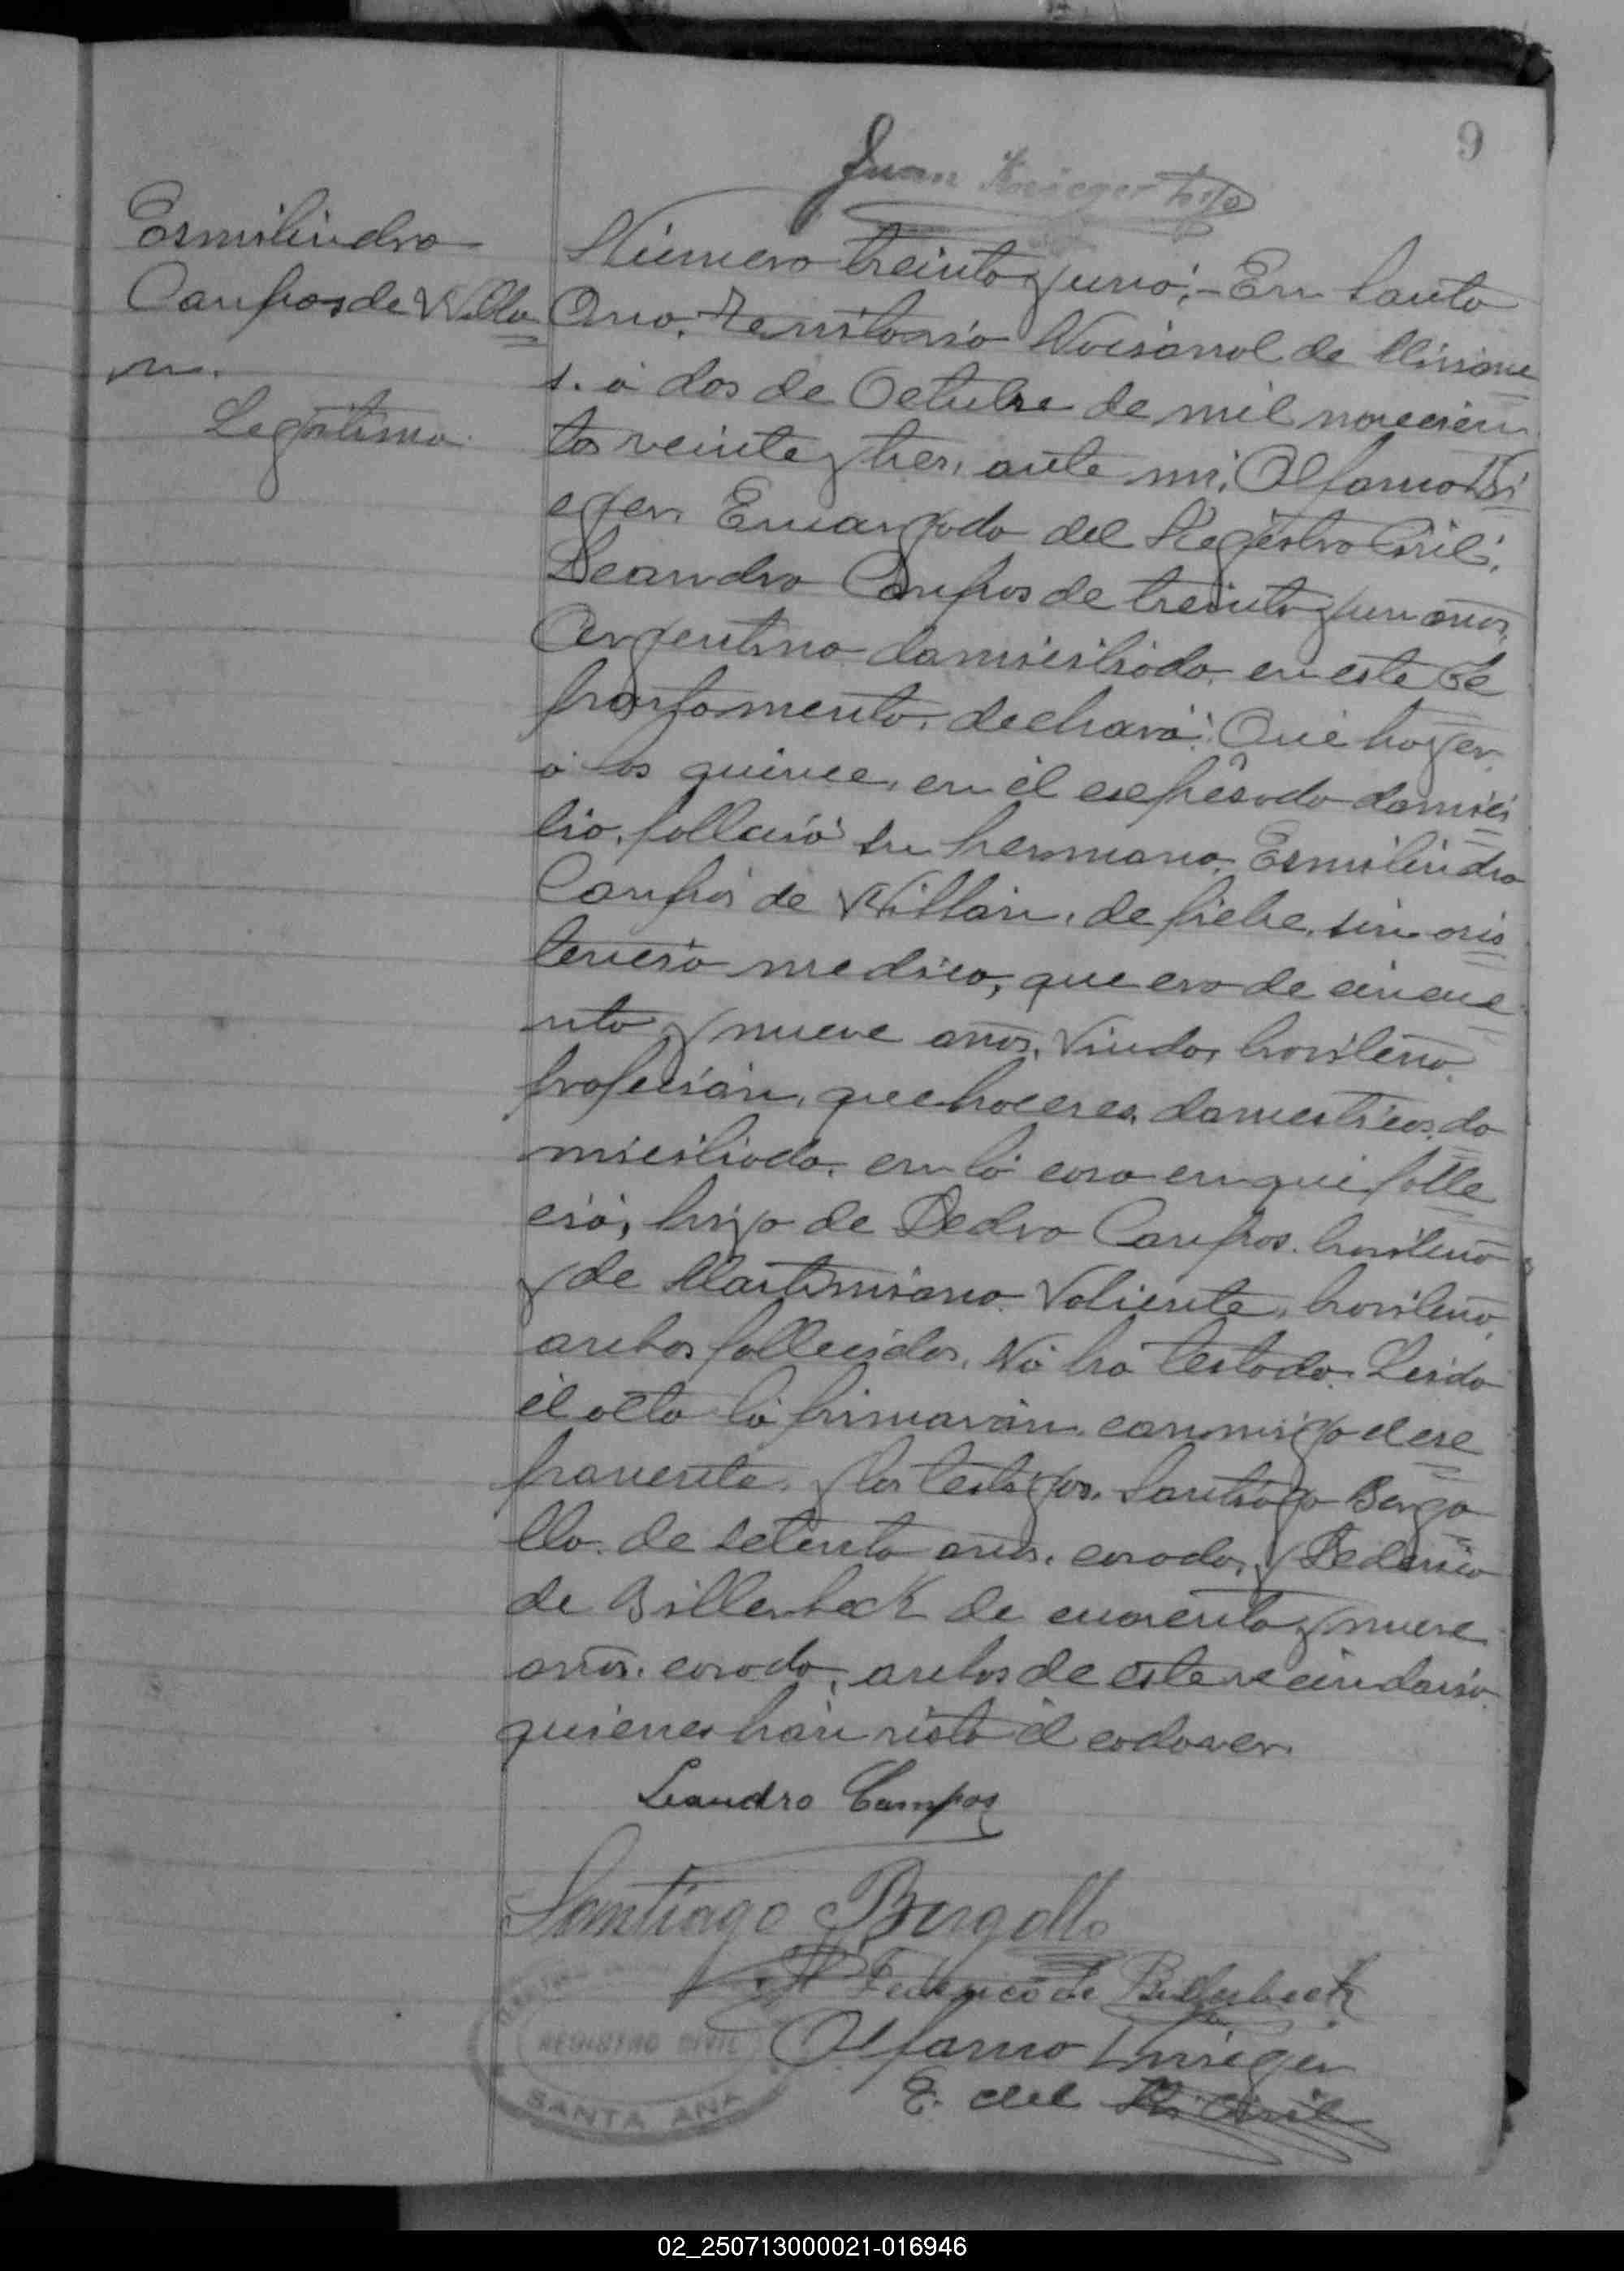 9
Juan Krieger hijo
Esmilindra
Campos de Villa
n.
Legitima.
Número treinta y uno; En Santa
Ana. Territorio Nacional de Misione
s. a dos de Octubre de mil novecien
tos veinte y tres, ante mi, Alfano Kri
eger. Encargado del Registro Civil,
Leandro Campos de treinta y un años,
Argentino domiciliado en este De
partamento, declaró: Que hoy
a las quince, en el expresado domici
lio, falleció su hermana Esmilindra
Campos de Villan, de fiebre, sin asis
tencia medica, que era de cincue
nta y nueve años, Viuda, brasileña
profesión, quehaceres, domesticos, do
miciliada, en la casa en que falle
ció, hija de Pedro Campos. brasileño
y de Martimiana Valiente, brasileña,
ambos fallecidos, No ha testado. Leida
el acta la firmaron, conmigo el ex
ponente, y los testigos, Santiago Berga
llo. de setenta años, casado, y Federico
de Billerbeck de cuarenta y nueve
años. casado, ambos de este vecindario
quienes han visto el cadaver.
Leandro Campos
Santiago Bergallo
Federico de Billerbeck
Alfano Krieger
E. del R. Civil
REGISTRO CIVIL
SANTA ANA
02_250713000021-016946